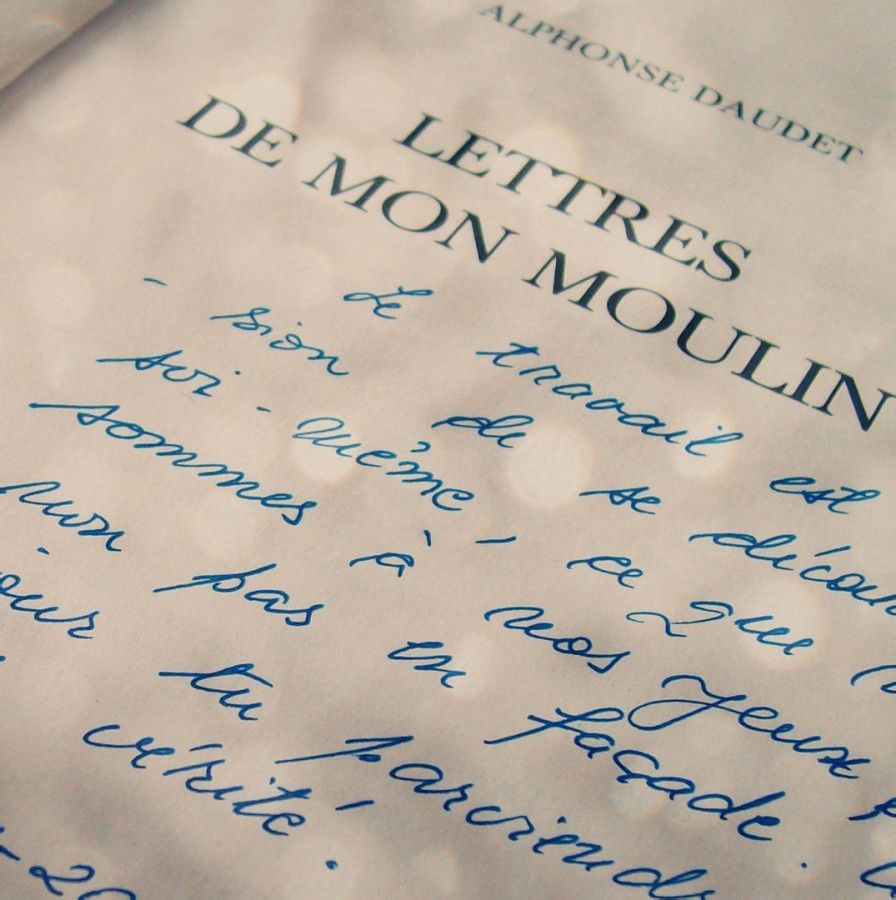 ALPHONSE DAUDET
LETTRES
DE MON MOULIN
Le travail est
- sion de se décou
soi-même - ce que
sommes à nos yeux
non pas en façade.
our tu parviendr
vérité!
20